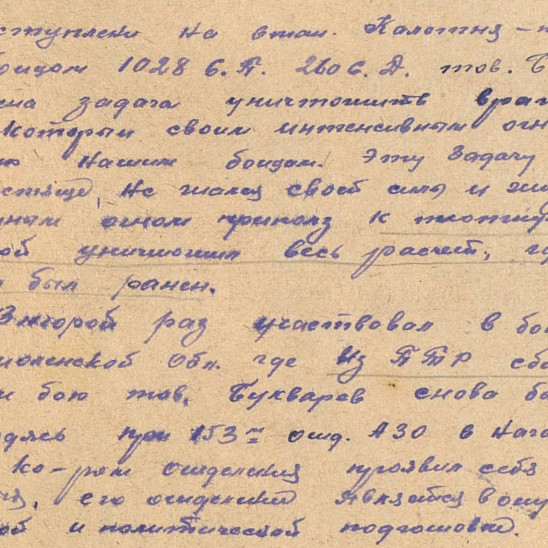 ступлени на стан. Калотня-
бойцом 1028 с.п. 260 с.д. тов. Б
на задача уничтошить враг
который своим интенсивным огн
ю нашим бойцам. Эту задачу
стяще, не жалея своей силы и жи
ным огном приполз к
ой уничтошил весь расчет, г
и был ранен.
Второй раз участвовал в бо
моленской обл. где из ПТР сб
м бою тов. Букварев снова б
дясь при 153м отд. АЗО в Нага
ко-ром отделения проявил себя
я, его отделение является в
ой и политической подготовке.